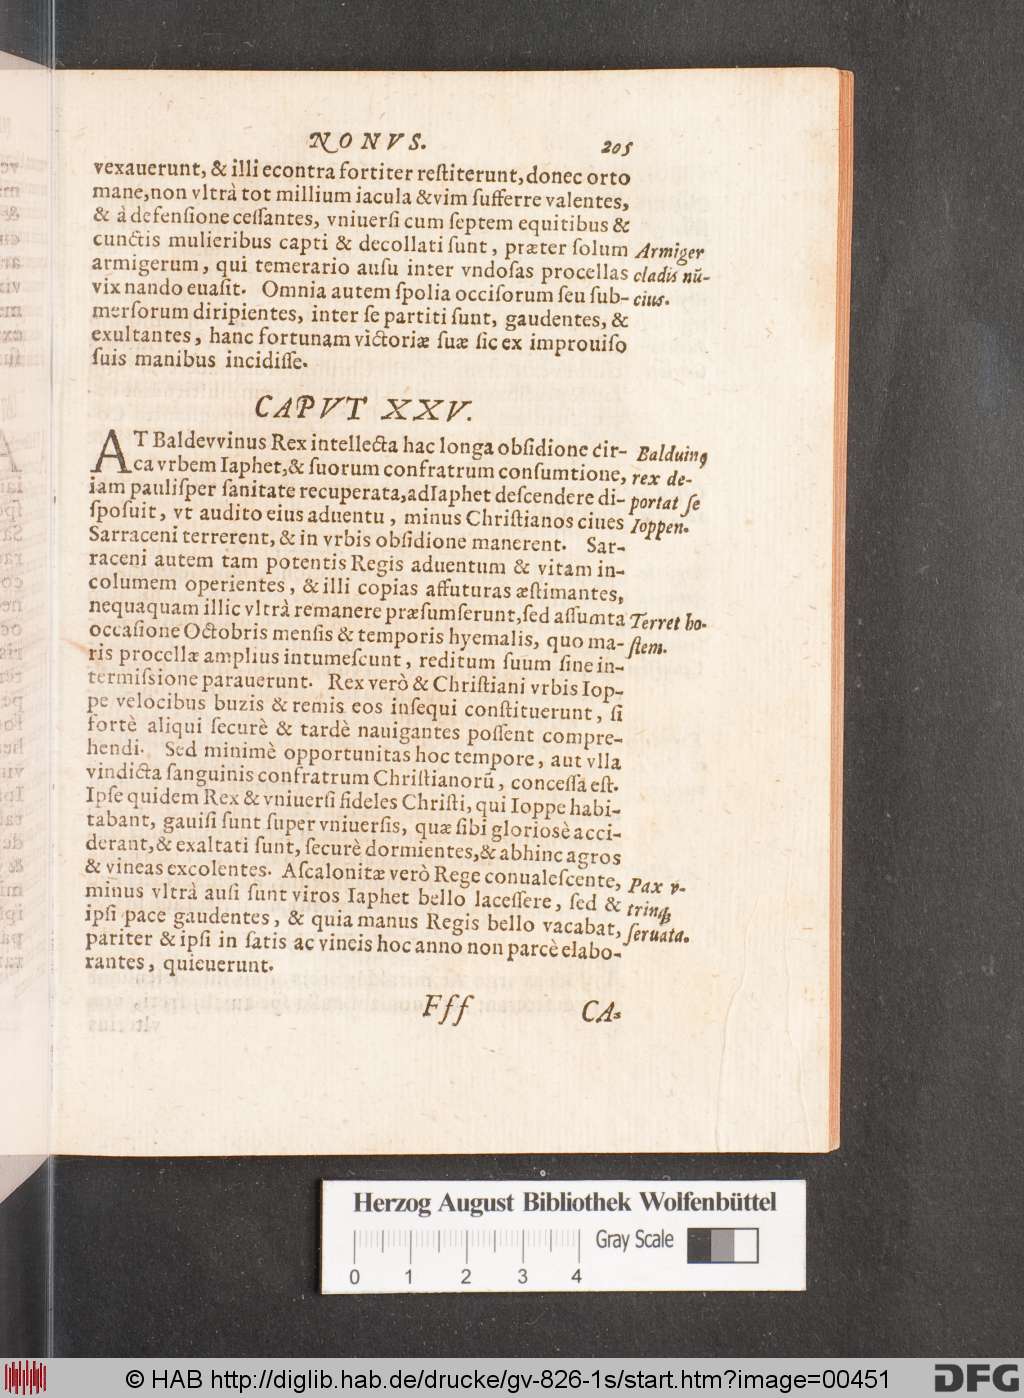 NONVS. 205
vexauerunt, & illi econtra fortiter reſtiterunt, donec orto
mane, non vltrà tot millium iacula & vim ſufferre valentes,
& à defenſione ceſſantes, vniuerſi cum ſeptem equitibus &
cunctis mulieribus capti & decollati ſunt, præter ſolum
armigerum, qui temerario auſu inter vndoſas procellas
vix nando euaſit. Omnia autem ſpolia occiſorum ſeu ſub-
merſorum diripientes, inter ſe partiti ſunt, gaudentes, &
exultantes, hanc fortunam victoriæ ſuæ ſic ex improuiſo
ſuis manibus incidiſſe.
Armiger
cladis nũ-
cius.
CAPVT XXV.
AT Baldevvinus Rex intellecta hac longa obſidione cir-
ca vrbem Iaphet, & ſuorum confratrum conſumtione,
iam pauliſper ſanitate recuperata, ad Iaphet deſcendere di-
ſpoſuit, vt audito eius aduentu, minus Chriſtianos ciues
Sarraceni terrerent, & in vrbis obſidione manerent. Sar-
raceni autem tam potentis Regis aduentum & vitam in-
columem operientes, & illi copias affuturas æſtimantes,
nequaquam illic vltrà remanere præſumſerunt, ſed aſſumta
occaſione Octobris menſis & temporis hyemalis, quo ma-
ris procellæ amplius intumeſcunt, reditum ſuum ſine in-
termiſsione parauerunt. Rex verò & Chriſtiani vrbis Iop-
pe velocibus buzis & remis eos inſequi conſtituerunt, ſi
fortè aliqui ſecurè & tardè nauigantes poſſent compre-
hendi. Sed minimè opportunitas hoc tempore, aut vlla
vindicta ſanguinis confratrum Chriſtianorũ, conceſſa eſt.
Ipſe quidem Rex & vniuerſi fideles Chriſti, qui Ioppe habi-
tabant, gauiſi ſunt ſuper vniuerſis, quæ ſibi glorioſè acci-
derant, & exaltati ſunt, ſecurè dormientes, & abhinc agros
& vineas excolentes. Aſcalonitæ verò Rege conualeſcente,
minus vltrà auſi ſunt viros Iaphet bello laceſſere, ſed &
ipſi pace gaudentes, & quia manus Regis bello vacabat,
pariter & ipſi in ſatis ac vineis hoc anno non parcè elabo-
rantes, quieuerunt.
Balduinꝰ
rex de-
portat ſe
Ioppen.
Terret ho-
ſtem.
Pax v-
trinq́;
ſeruata.
Fff CA-
Herzog August Bibliothek Wolfenbüttel
Gray Scale
0 1 2 3 4
© HAB http://diglib.hab.de/drucke/gv-826-1s/start.htm?image=00451
DFG